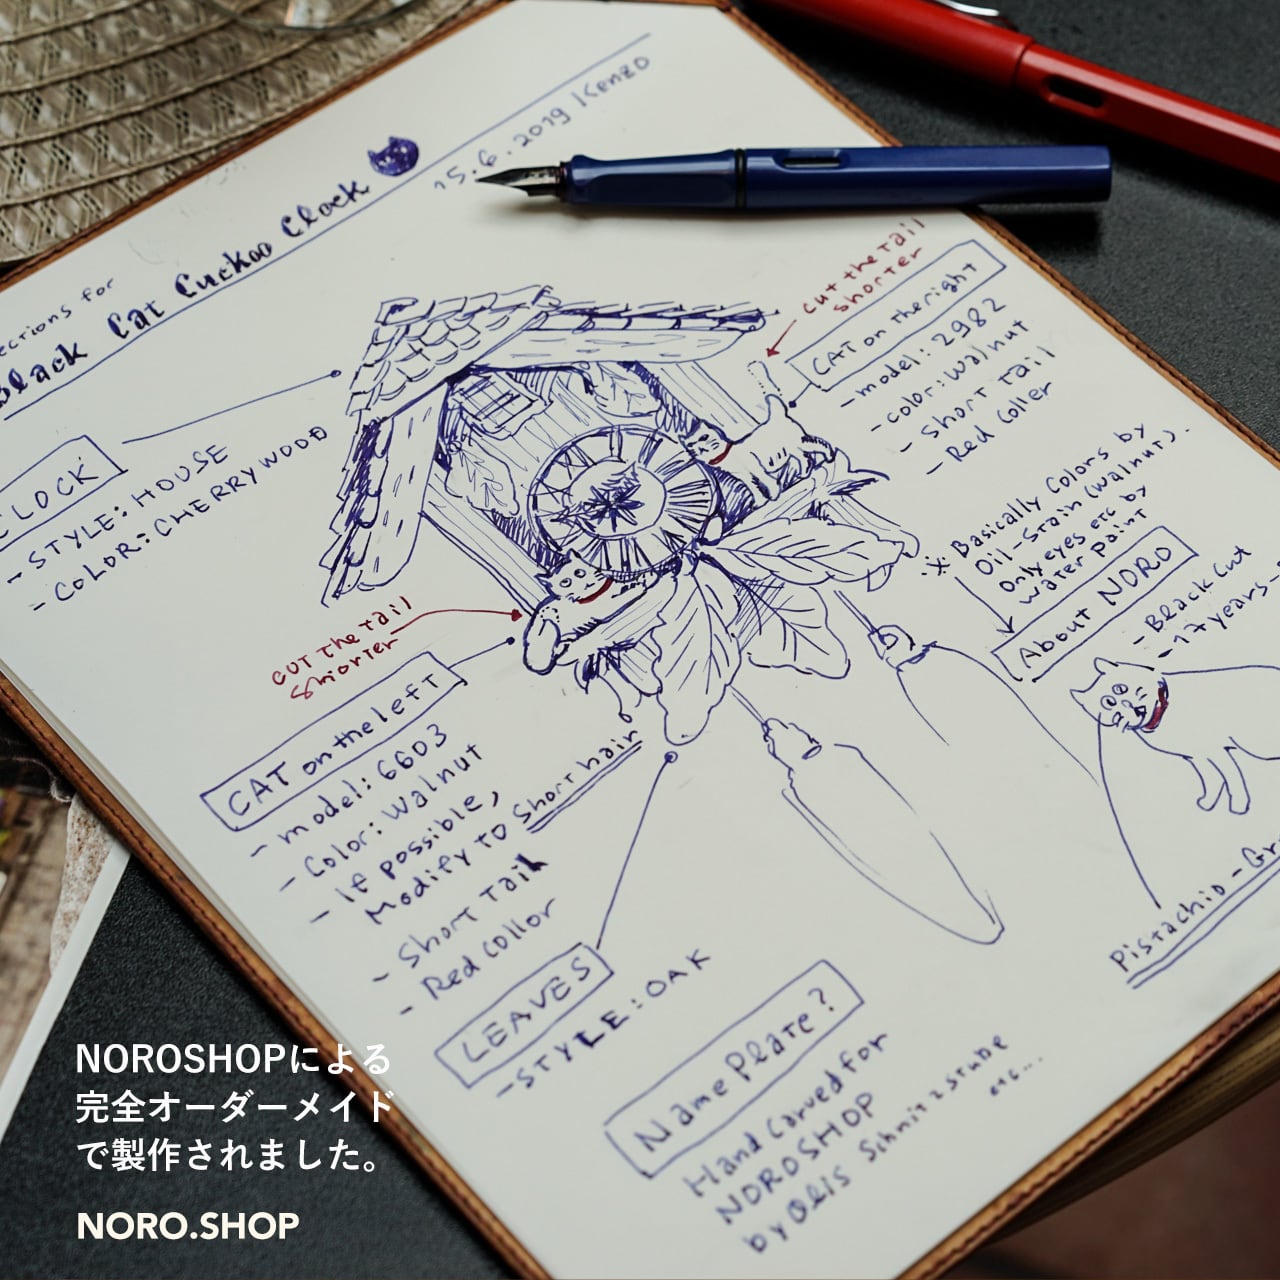 ections for
Black Cat Cuckoo Clock
15.6.2019 Kenzo
CLOCK
- STYLE: HOUSE
- COLOR: CHERRYWOOD
cut the tail
shorter
CAT on the right
- model: 2982
- color: walnut
- short tail
- Red Coller
※ Basically Colors by
Oil-Stain (walnut).
Only eyes etc by
water paint
About NORO
- Black Cat
- 17 years-
Pistachio-Gr
CUT The Tail
Shiorter
CAT on the left
- model: 6603
- Color: Walnut
- If possible,
Modify to Short hair
- Short Tail
- Red Collor
LEAVES
- STYLE: OAK
Name Plate?
Hand Carved for
NOROSHOP
by Olis Schnitzstube
etc...
NOROSHOPによる
完全オーダーメイド
で製作されました。
NORO.SHOP